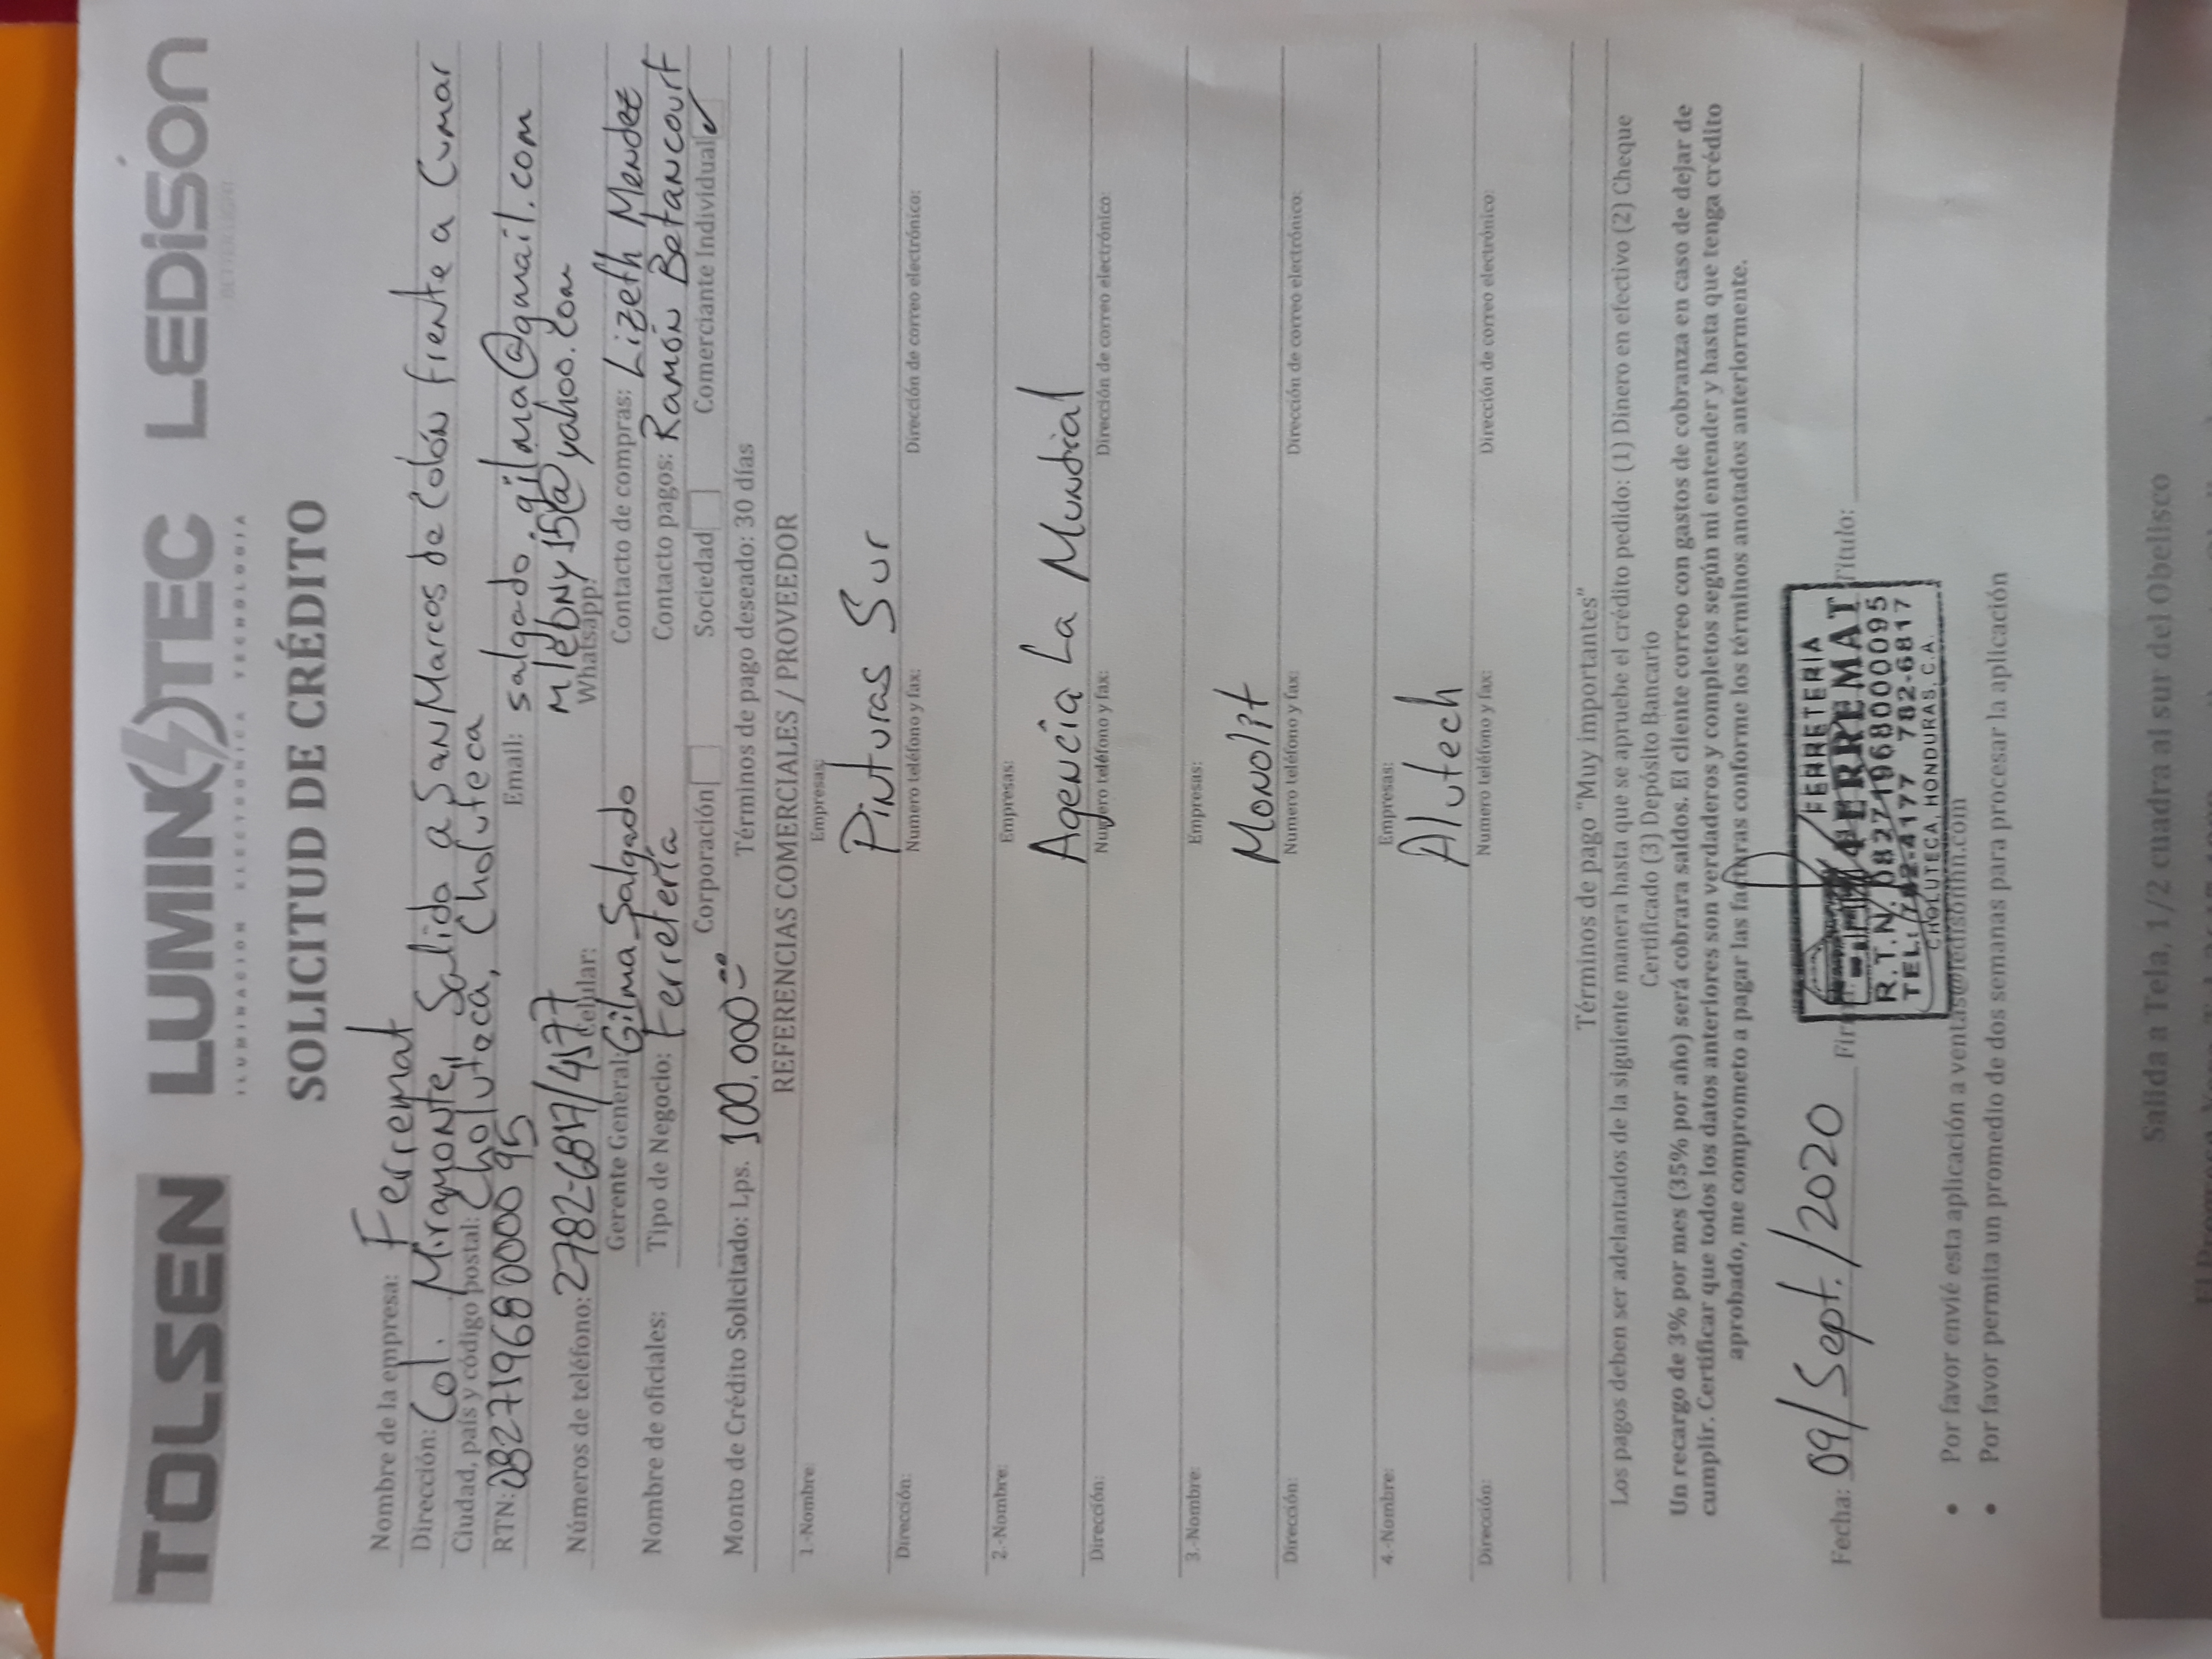 TOLSEN LUMINOTEC LEDISON
ILUMINACION ELECTRONICA TECNOLOGIA BETTER LIGHT
SOLICITUD DE CRÉDITO
Nombre de la empresa: Ferremat
Dirección: Col. Miramonte, Salida a San Marcos de Colón frente a Cumar
Ciudad, país y código postal: Choluteca, Choluteca
RTN: 08271968000095 Email: salgado.gilma@gmail.com
mlebny15@yahoo.com
Números de teléfono: 2782-6817/4177 Celular: Whatsapp:
Gerente General: Gilma Salgado Contacto de compras: Lizeth Mendez
Nombre de oficiales: Tipo de Negocio: Ferretería Contacto pagos: Ramón Betancourt
Corporación Sociedad Comerciante Individual ✓
Monto de Crédito Solicitado: Lps. 100.000.00 Términos de pago deseado: 30 días
REFERENCIAS COMERCIALES / PROVEEDOR
1.-Nombre: Empresas:
Pinturas Sur
Dirección: Numero teléfono y fax: Dirección de correo electrónico:
2.-Nombre: Empresas:
Agencia La Mundial
Dirección: Numero teléfono y fax: Dirección de correo electrónico:
3.-Nombre: Empresas:
Monolit
Dirección: Numero teléfono y fax: Dirección de correo electrónico:
4.-Nombre: Empresas:
Alutech
Dirección: Numero teléfono y fax: Dirección de correo electrónico:
Términos de pago “Muy importantes”
Los pagos deben ser adelantados de la siguiente manera hasta que se apruebe el crédito pedido: (1) Dinero en efectivo (2) Cheque
Certificado (3) Depósito Bancario
Un recargo de 3% por mes (35% por año) será cobrara saldos. El cliente correo con gastos de cobranza en caso de dejar de
cumplir. Certificar que todos los datos anteriores son verdaderos y completos según mi entender y hasta que tenga crédito
aprobado, me comprometo a pagar las facturas conforme los términos anotados anteriormente.
Fecha: 09/Sept./2020 Titulo:
FERRETERIA
FERREMAT
R.T.N. 08271968000095
TEL: 782-4177 782-6817
CHOLUTECA, HONDURAS, C.A.
• Por favor envié esta aplicación a ventas@ledisonhn.com
• Por favor permita un promedio de dos semanas para procesar la aplicación
Salida a Tela, 1/2 cuadra al sur del Obelisco